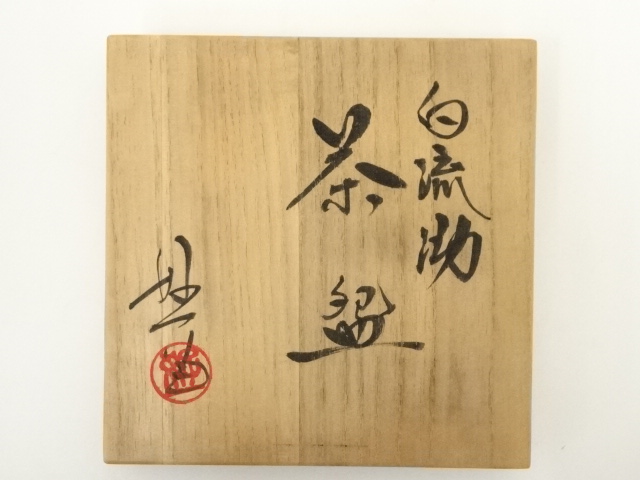 白流泑
茶盌